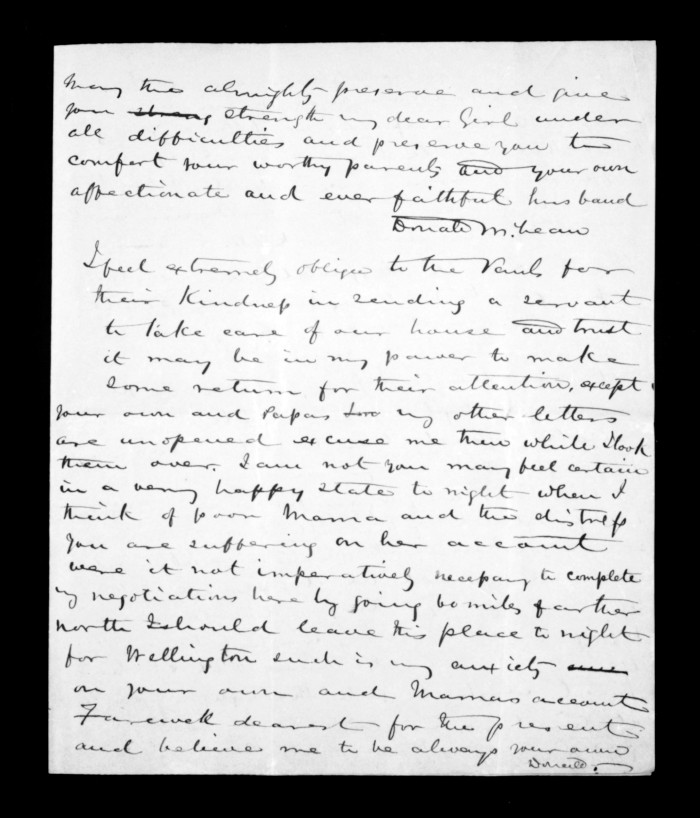 May the almighty preserve and give
you strong strength my dear Girl under
all difficulties and preserve you to
comfort your worthy parents and your own
affectionate and ever faithful husband
Donald McLean
I feel extremely obliged to the for
their Kindness in sending a servant
to take care of our house and trust
it may be in my power to make
some return for their attention, except
your own and Papas my other letters
are unopened excuse me then while I look
them over. I am not you may feel certain
in a very happy state to night when I
think of poor Mama and the distress
you are suffering on her account
were it not imperatively necessary to complete
my negotiations here by going 60 miles farther
north I should leave this place to night
for Wellington such is my anxiety
on your own and Mamas account
Farewell dearest for the present
and believe me to be always your own
Donald.